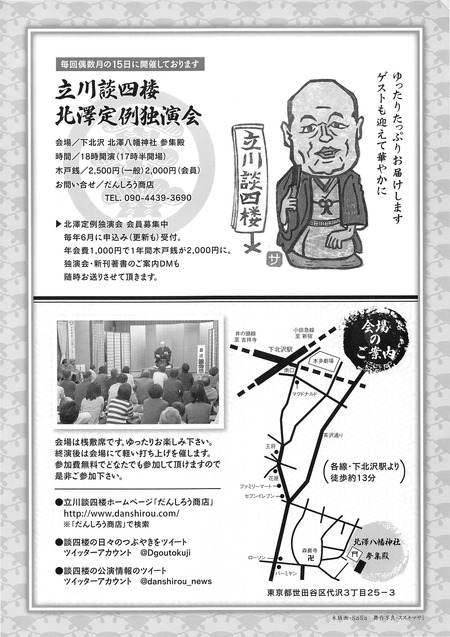 毎回偶数月の15日に開催しております
立川談四楼
北澤定例独演会
会場／下北沢 北澤八幡神社 参集殿
時間／18時開演(17時半開場)
木戸銭／2,500円(一般)2,000円(会員)
お問い合せ／だんしろう商店
TEL. 090-4439-3690
▶北澤定例独演会 会員募集中
毎年6月に申込み(更新も)受付。
年会費1,000円で1年間木戸銭が2,000円に。
独演会・新刊著書のご案内DMも
随時お送りさせて頂きます。
ゆったりたっぷりお届けします
ゲストも迎えて華やかに
立川談四楼
サ
会場は桟敷席です。ゆったりお楽しみ下さい。
終演後は会場にて軽い打ち上げを催します。
参加費無料でどなたでも参加して頂けますので
是非ご参加下さい。
●立川談四楼ホームページ「だんしろう商店」
http://www.danshirou.com/
※「だんしろう商店」で検索
●談四楼の日々のつぶやきをツイート
ツイッターアカウント @Dgoutokuji
●談四楼の公演情報のツイート
ツイッターアカウント @danshirou_news
会場
の
ご案内
井の頭線
至 吉祥寺
小田急線
至 新宿
下北沢駅
南口
本多劇場
マクドナルド
茶沢通り
王将
花屋
ファミリーマート
セブンイレブン
(各線・下北沢駅より
徒歩約13分)
北澤八幡神社
参集殿
森巌寺
ローソン
バーミヤン
東京都世田谷区代沢3丁目25-3
木版画・SaSa 舞台写真・スズキマサミ